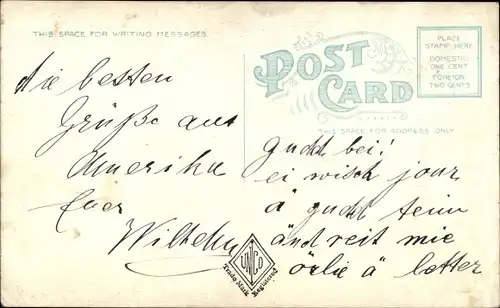 THIS SPACE FOR WRITING MESSAGES.
POST CARD
PLACE
STAMP HERE
DOMESTIC
ONE CENT
FOREIGN
TWO CENTS
THIS SPACE FOR ADDRESS ONLY
die besten
Grüße aus
Amerika
Euer
Wilhelm
bei!
ei wisch jour
a
reit mie
a better
UNCO
Trade Mark Registered